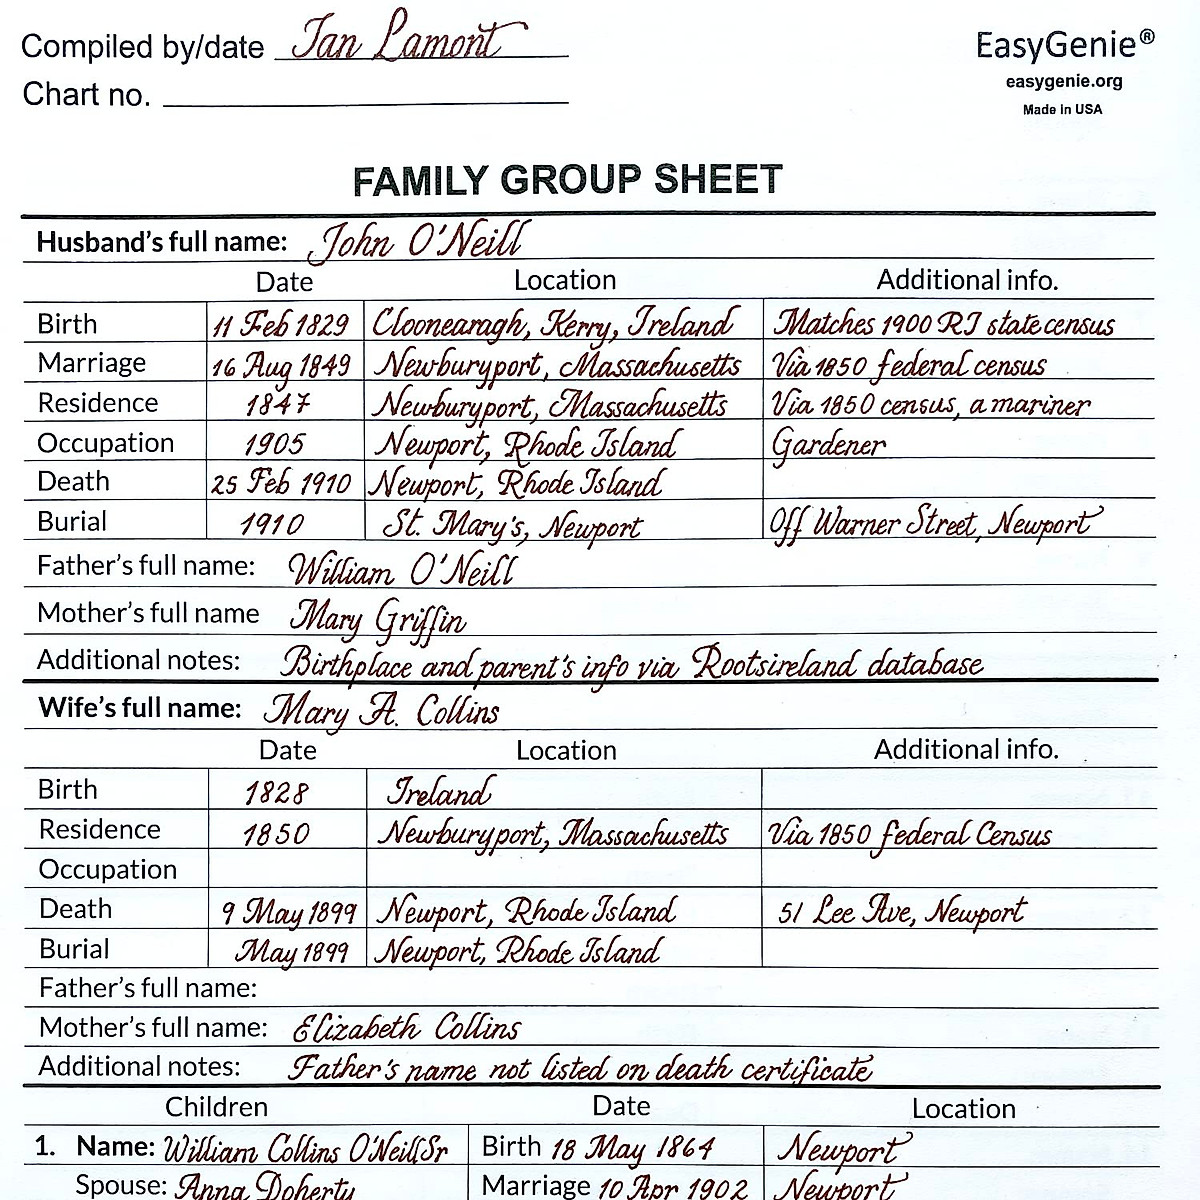 Compiled by/date Ian Lamont
EasyGenie®
easygenie.org
Made in USA
Chart no.
FAMILY GROUP SHEET
Husband's full name: John O'Neill
Date Location Additional info.
Birth 11 Feb 1829 Cloonearagh, Kerry, Ireland Matches 1900 RI state census
Marriage 16 Aug 1849 Newburyport, Massachusetts Via 1850 federal census
Residence 1847 Newburyport, Massachusetts Via 1850 census, a mariner
Occupation 1905 Newport, Rhode Island Gardener
Death 25 Feb 1910 Newport, Rhode Island
Burial 1910 St. Mary's, Newport Off Warner Street, Newport
Father's full name: William O'Neill
Mother's full name Mary Griffin
Additional notes: Birthplace and parent's info via Rootsireland database
Wife's full name: Mary A. Collins
Date Location Additional info.
Birth 1828 Ireland
Residence 1850 Newburyport, Massachusetts Via 1850 federal Census
Occupation
Death 9 May 1899 Newport, Rhode Island 51 Lee Ave, Newport
Burial May 1899 Newport, Rhode Island
Father's full name:
Mother's full name: Elizabeth Collins
Additional notes: Father's name not listed on death certificate
Children Date Location
1. Name: William Collins O'Neill Sr Birth 18 May 1864 Newport
Spouse: Anna Doherty Marriage 10 Apr 1902 Newport